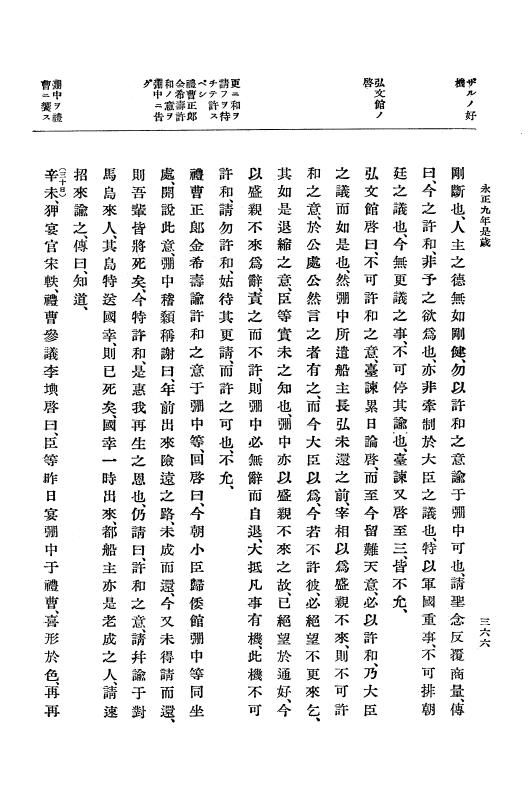 永正九年是歲
三六六
ザルノ好
機
弘文館ノ
啓
更ニ和ヲ
請フヲ待
チテ許ス
ベシ
禮曹正郞
金希壽許
和ノ意ヲ
弸中ニ吿
グ
弸中ヲ禮
曹ニ饗ス
剛斷也、人主之德無如剛健、勿以許和之意諭于弸中可也、請聖念反覆商量、傳
曰、今之許和、非予之欲爲也、亦非牽制於大臣之議也、特以軍國重事、不可排朝
廷之議也、今無更議之事、不可停其論也、臺諫又啓至三、皆不允、
弘文館啓曰、不可許和之意、臺諫累日論啓、而至今留難天意、必以許和、乃大臣
之議而如是也、然弸中所遣船主長弘未還之前、宰相以爲盛親不來、則不可許
和之意、於公處公然言之者有之、而今大臣以爲、今若不許彼、必絕望不更來乞、
其如是退縮之意、臣等實未之知也、弸中亦以盛親不來之故、已絕望於通好、今
以盛親不來爲辭、責之而不許、則弸中必無辭而自退、大抵凡事有機、此機不可
許和、請勿許和、姑待其更請、而許之可也、不允、
禮曹正郞金希壽諭許和之意于弸中等、回啓曰、今朝小臣歸倭館、弸中等同坐
處、開說此意、弸中稽顙稱謝曰、年前出來險遠之路、未成而還、今又未得請而還、
則吾輩皆將死矣、今特許和、是惠我再生之恩也、仍請曰、許和之意、請幷諭于對
馬島來人、其島特送國幸、則已死矣、國幸一時出來、都船主亦是老成之人、請速
招來諭之、傳曰、知道、
(三十日)辛未、狎宴官宋軼、禮曹參議李堧啓曰、臣等昨日宴弸中于禮曹、喜形於色、再再